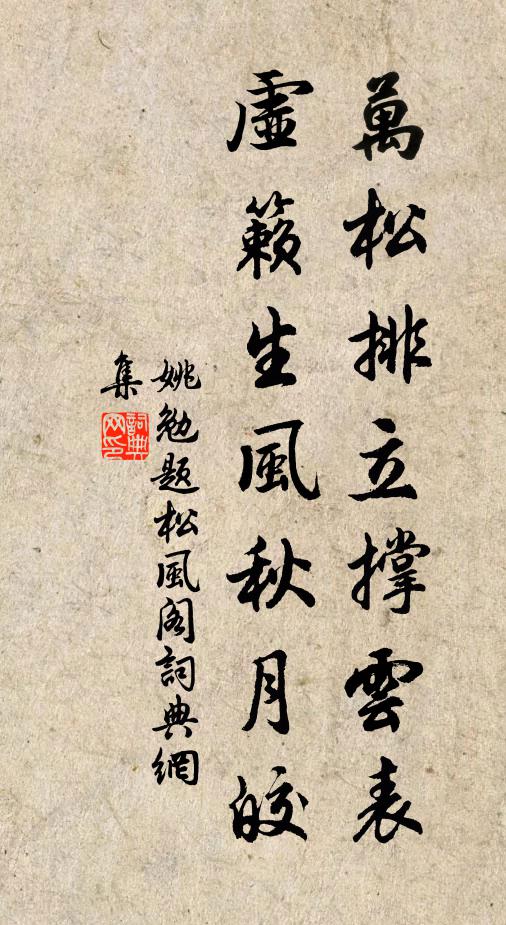 萬松排立撐雲表
虛籟生風秋月皎
姚勉題松風阁詞典網
集
詞典
网印